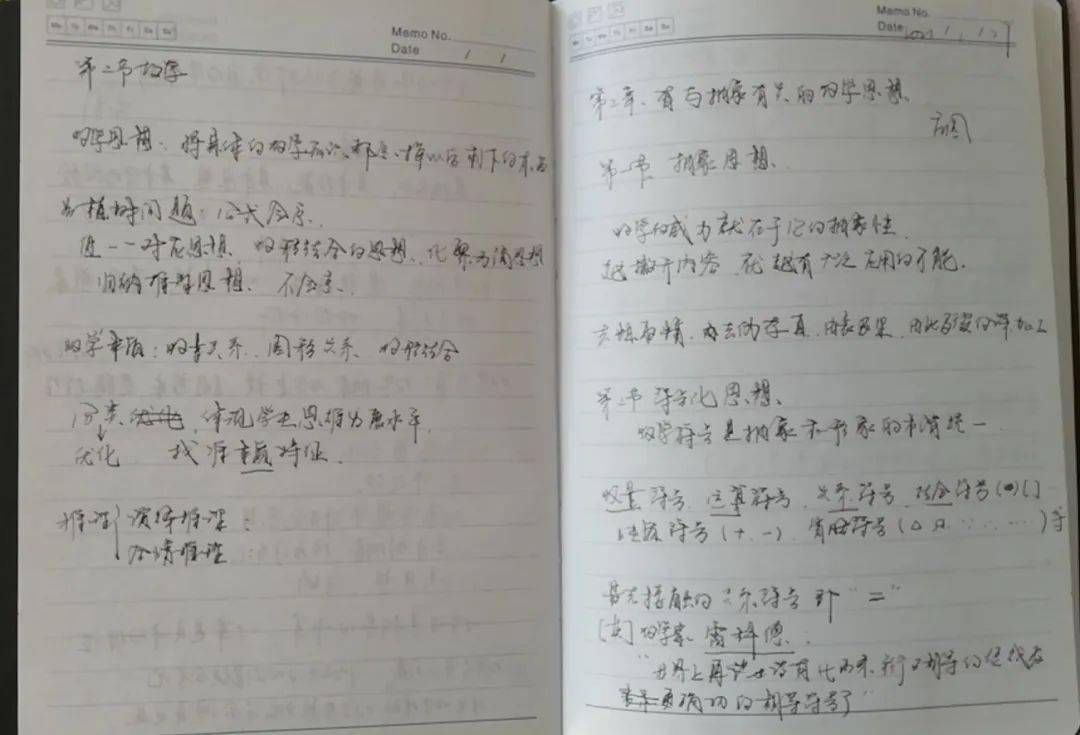 Memo No.
Mo Tu We Th Fr Sa Su
Date / /
第二节数学
数学思想：将具体的数学知识都忘掉以后剩下的东西
如植树问题：公式会忘
但一一对应思想、数形结合的思想、化繁为简思想
归纳推理思想、不会忘、
数学本质：数量关系、图形关系、数形结合
分类优化、体现学生思维力度水平
优化 找准本质特征、
推理 演绎推理：
合情推理
Memo No.
Mo Tu We Th Fr Sa Su
Date
第二章、有与抽象有关的数学思想、
第一节 抽象思想、
数学的威力就在于它的抽象性
越撇开内容 就越有广泛应用的可能、
去粗取精、去伪存真、由表及里、由此及彼的 加工
第二节 符号化思想、
数学符号是抽象和形象的 统一
数量符号、运算符号、关系符号、结合符号( )[ ]
性质符号(+、-) 省略符号(△ ∵ ∴ …)等
首先接触的关系符号即“=”
[英]数学家 雷科德、
“世界上再 没有比两条 相等的线段
更 的相等符号了”